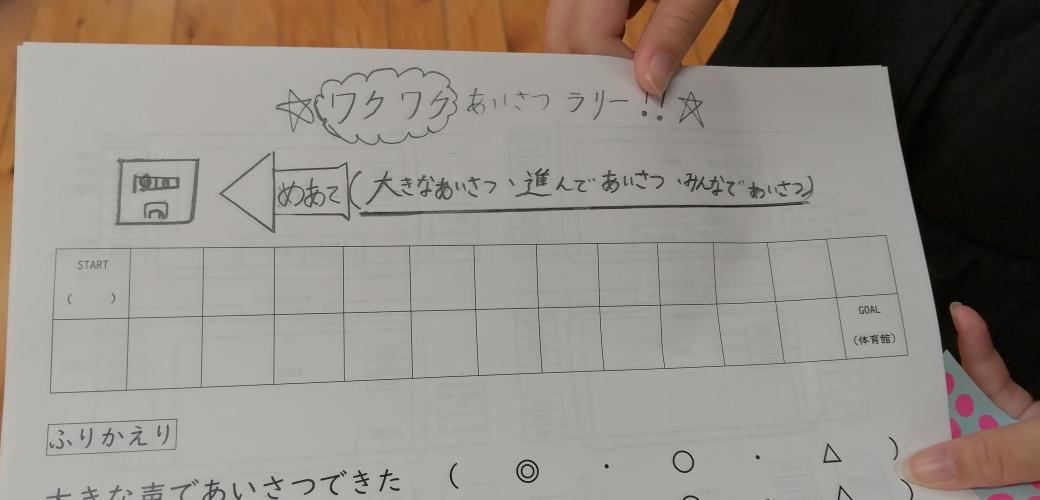 ☆ワクワクあいさつラリー!!☆
めあて(大きなあいさつ、進んであいさつ、みんなであいさつ)
START
( )
GOAL
(体育館)
ふりかえり
大きな声であいさつできた ( ◎ ・ ○ ・ △ )